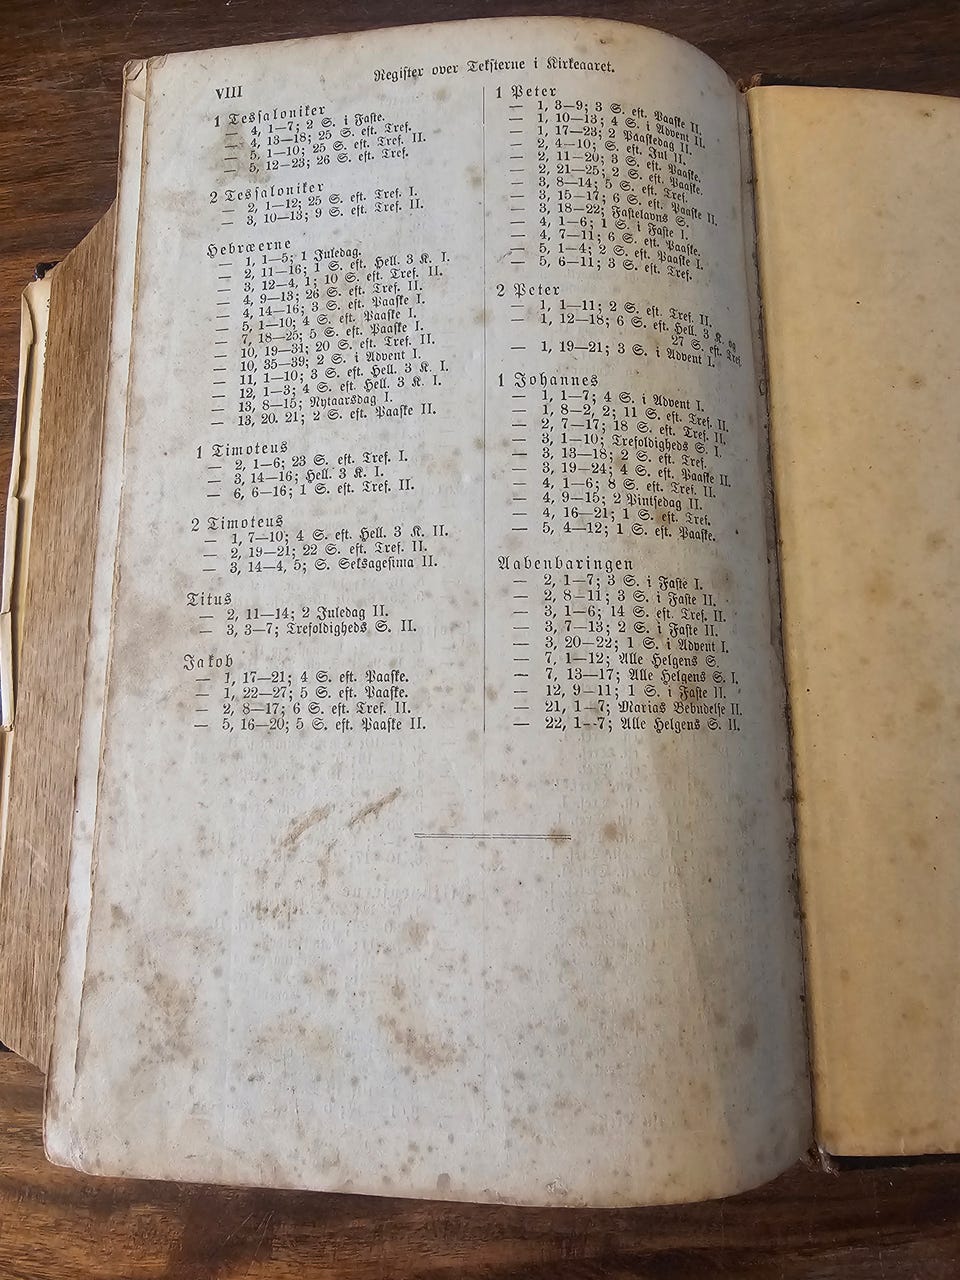 VIII
Register over Teksterne i Kirkeaaret.
1 Tessaloniker
— 4, 1—7; 2 S. i Faste.
— 4, 13—18; 25 S. eft. Tref.
— 5, 1—10; 25 S. eft. Tref. II.
— 5, 12—23; 26 S. eft. Tref.
2 Tessaloniker
— 2, 1—12; 25 S. eft. Tref. I.
— 3, 10—13; 9 S. eft. Tref. II.
Hebræerne
— 1, 1—5; 1 Juledag.
— 2, 11—16; 1 S. eft. Hell. 3 K. I.
— 3, 12—4, 1; 10 S. eft. Tref. II.
— 4, 9—13; 26 S. eft. Tref. II.
— 4, 14—16; 3 S. eft. Paaske I.
— 5, 1—10; 4 S. eft. Paaske I.
— 7, 18—25; 5 S. eft. Paaske I.
— 10, 19—31; 20 S. eft. Tref. II.
— 10, 35—39; 2 S. i Advent I.
— 11, 1—10; 3 S. eft. Hell. 3 K. I.
— 12, 1—3; 4 S. eft. Hell. 3 K. I.
— 13, 8—15; Nytaarsdag I.
— 13, 20. 21; 2 S. eft. Paaske II.
1 Timoteus
— 2, 1—6; 23 S. eft. Tref. I.
— 3, 14—16; Hell. 3 K. I.
— 6, 6—16; 1 S. eft. Tref. II.
2 Timoteus
— 1, 7—10; 4 S. eft. Hell. 3 K. II.
— 2, 19—21; 22 S. eft. Tref. II.
— 3, 14—4, 5; S. Seksagesima II.
Titus
— 2, 11—14; 2 Juledag II.
— 3, 3—7; Trefoldigheds S. II.
Jakob
— 1, 17—21; 4 S. eft. Paaske.
— 1, 22—27; 5 S. eft. Paaske.
— 2, 8—17; 6 S. eft. Tref. II.
— 5, 16—20; 5 S. eft. Paaske II.
1 Peter
— 1, 3—9; 3 S. eft. Paaske II.
— 1, 10—13; 4 S. i Advent II.
— 1, 17—23; 2 Paaskedag II.
— 2, 4—10; S. eft. Jul II.
— 2, 11—20; 3 S. eft. Paaske.
— 2, 21—25; 2 S. eft. Paaske.
— 3, 8—14; 5 S. eft. Tref.
— 3, 15—17; 6 S. eft. Paaske II.
— 3, 18—22; Fastelavns S.
— 4, 1—6; 1 S. i Faste I.
— 4, 7—11; 6 S. eft. Paaske.
— 5, 1—4; 2 S. eft. Paaske I.
— 5, 6—11; 3 S. eft. Tref.
2 Peter
— 1, 1—11; 2 S. eft. Tref. II.
— 1, 12—18; 6 S. eft. Hell. 3 K. og
27 S. eft. Tref.
— 1, 19—21; 3 S. i Advent I.
1 Johannes
— 1, 1—7; 4 S. i Advent I.
— 1, 8—2, 2; 11 S. eft. Tref. II.
— 2, 7—17; 18 S. eft. Tref. II.
— 3, 1—10; Trefoldigheds S. I.
— 3, 13—18; 2 S. eft. Tref.
— 3, 19—24; 4 S. eft. Paaske II.
— 4, 1—6; 8 S. eft. Tref. II.
— 4, 9—15; 2 Pintsedag II.
— 4, 16—21; 1 S. eft. Tref.
— 5, 4—12; 1 S. eft. Paaske.
Aabenbaringen
— 2, 1—7; 3 S. i Faste I.
— 2, 8—11; 3 S. i Faste II.
— 3, 1—6; 14 S. eft. Tref. II.
— 3, 7—13; 2 S. i Faste II.
— 3, 20—22; 1 S. i Advent I.
— 7, 1—12; Alle Helgens S.
— 7, 13—17; Alle Helgens S. I.
— 12, 9—11; 1 S. i Faste II.
— 21, 1—7; Marias Bebudelse II.
— 22, 1—7; Alle Helgens S. II.